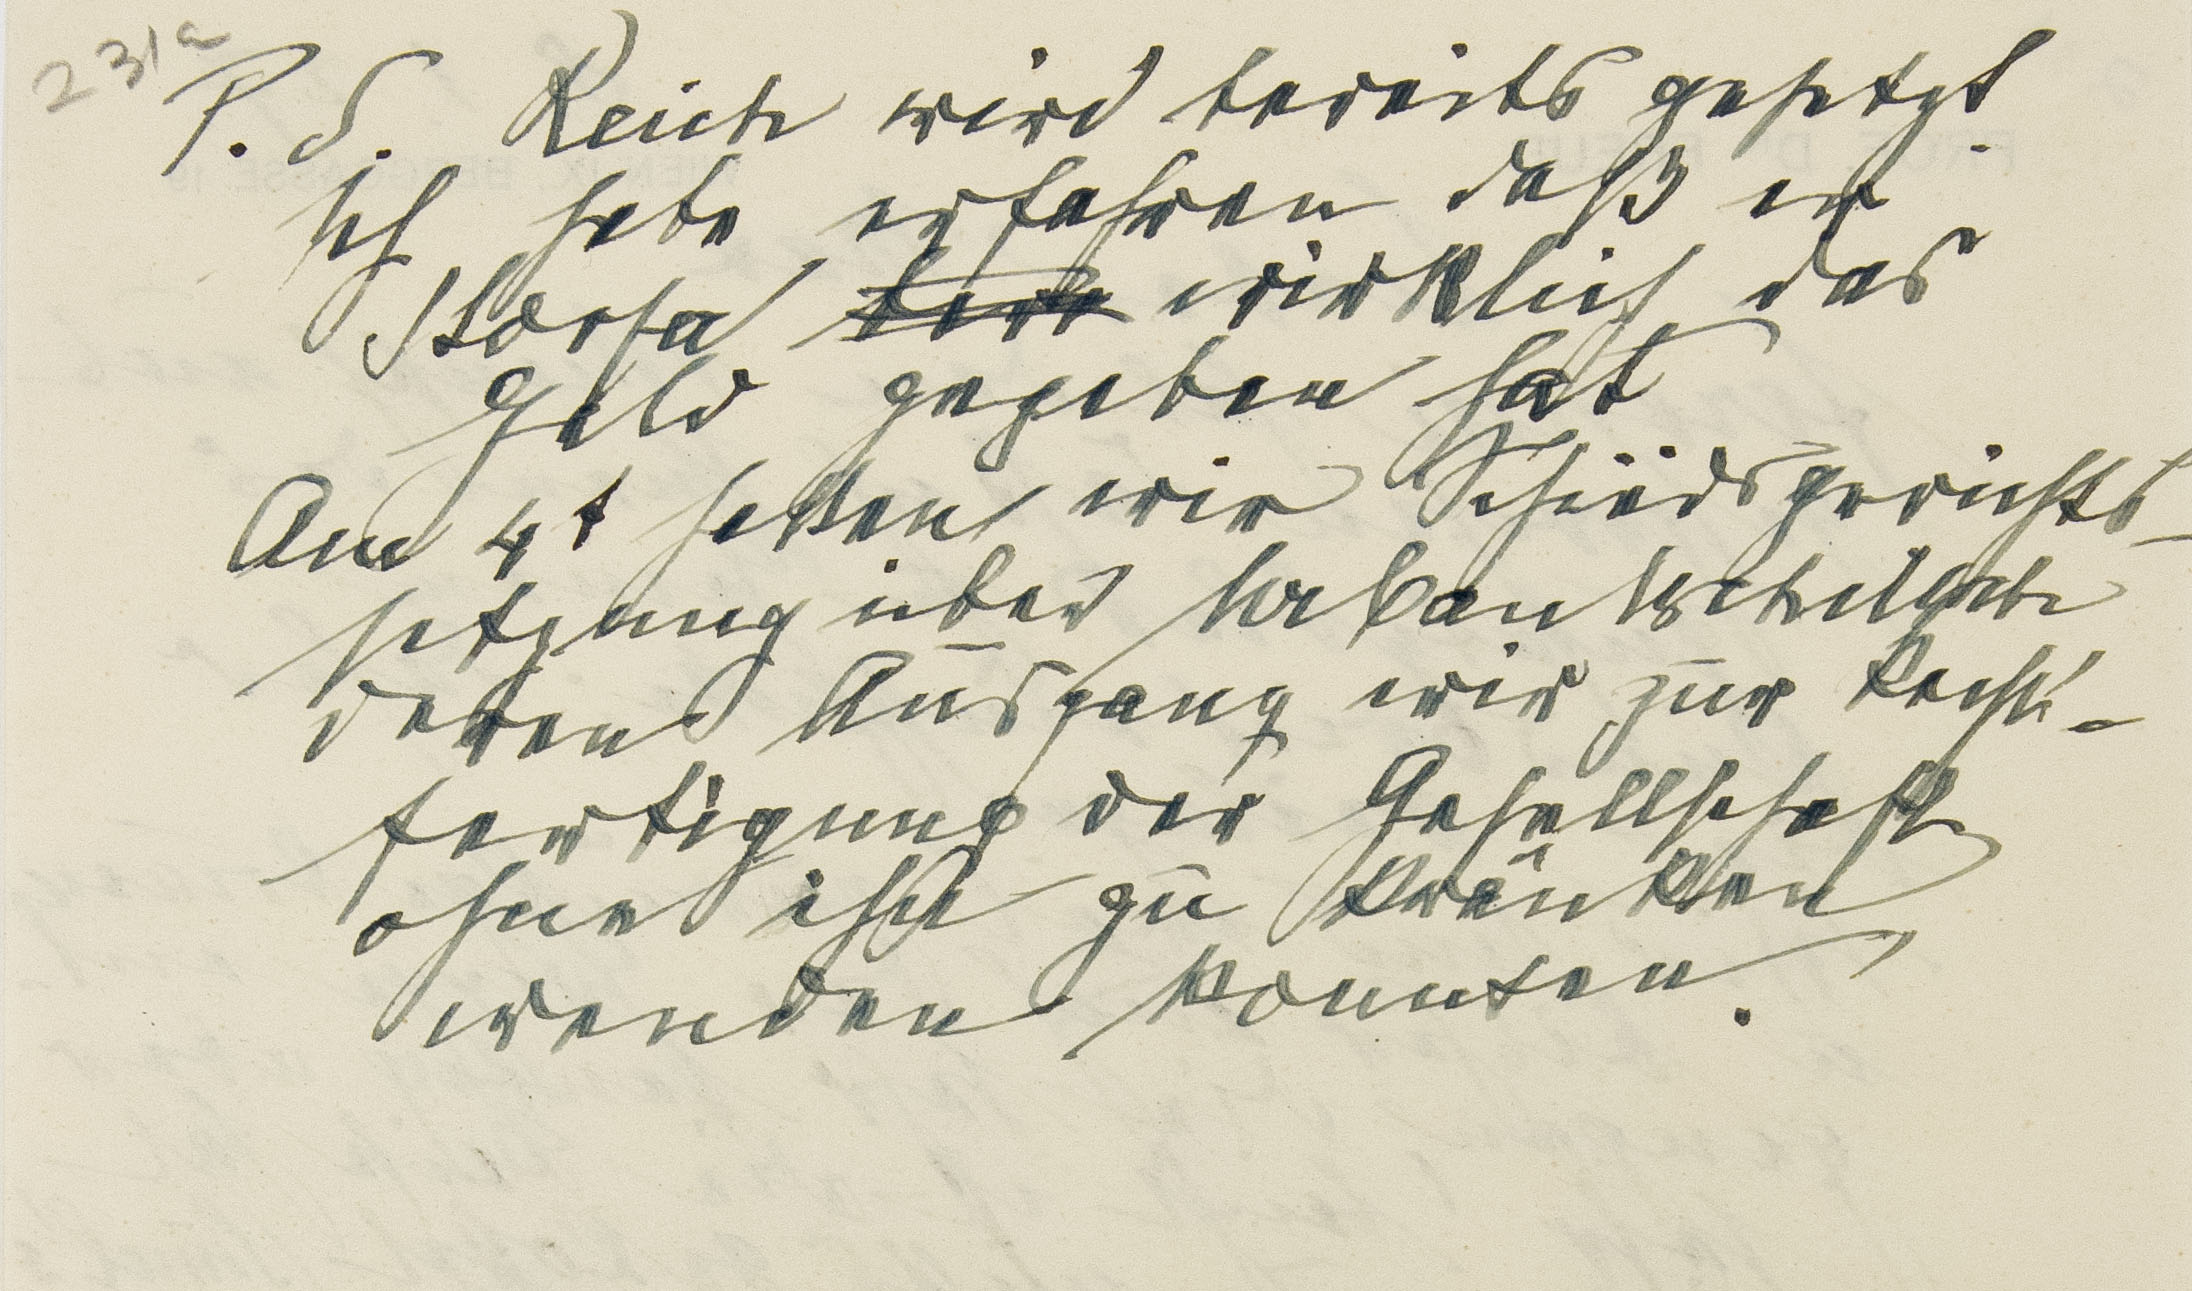 231a
P. S. Reich wird bereits gesetzt.
Ich habe erfahren daß er
Storfer wirklich das
Geld gegeben hat
Am 4t hatten wir Schiedsgerichts-
sitzung über Urbantschitsch
deren Ausgang wir zur Recht-
fertigung der Gesellschaft
ohne ihn zu kränken
wenden konnten.